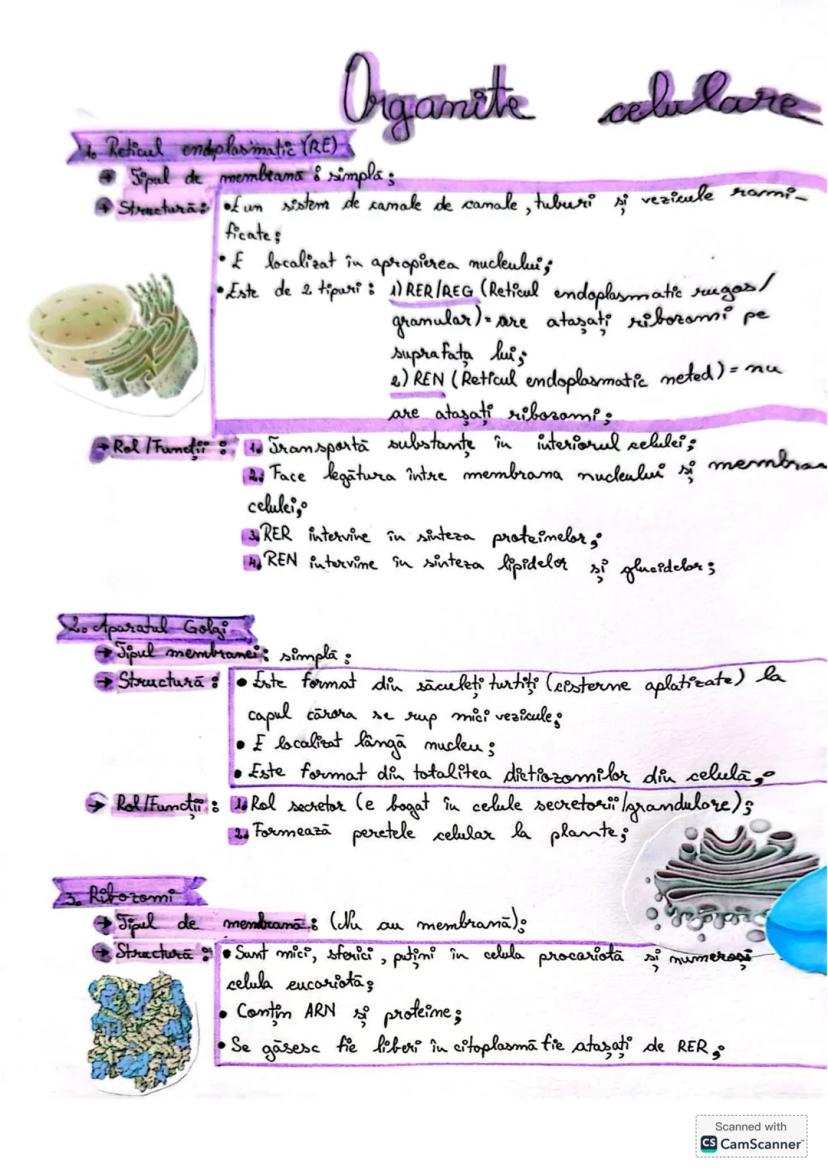 Organite celulare
1. Reticul endoplasmatic (RE)
→ Tipul de membrană: simplă;
→ Structură: • E un sistem de canale de canale, tuburi și vezicule rami-
ficate;
• E localizat în apropierea nucleului;
• Este de 2 tipuri: 1) RER/REG (Reticul endoplasmatic rugos/
granular) = are atașați ribozomi pe
suprafața lui;
2) REN (Reticul endoplasmatic neted) = nu
are atașați ribozomi;
→ Rol/Funcții: 1. Transportă substanțe în interiorul celulei;
2. Face legătura între membrana nucleului și membra
celulei;
3. RER intervine în sinteza proteinelor;
4. REN intervine în sinteza lipidelor și glucidelor;
2. Aparatul Golgi
→ Tipul membranei: simplă;
→ Structură: • Este format din săculeți turtiți (cisterne aplatizate) la
capul cărora se rup mici vezicule;
• E localizat lângă nucleu;
• Este format din totalitea dictiozomilor din celulă;
→ Rol/Funcții: 1. Rol secretor (e bogat în celule secretorii/grandulare);
2. Formează peretele celular la plante;
3. Ribozomi
→ Tipul de membrană: (Nu au membrană);
→ Structură: • Sunt mici, sferici, puțini în celula procariotă și numeroși
celula eucariotă;
• Conțin ARN și proteine;
• Se găsesc fie liberi în citoplasmă fie atașați de RER;
Scanned with
CS CamScanner